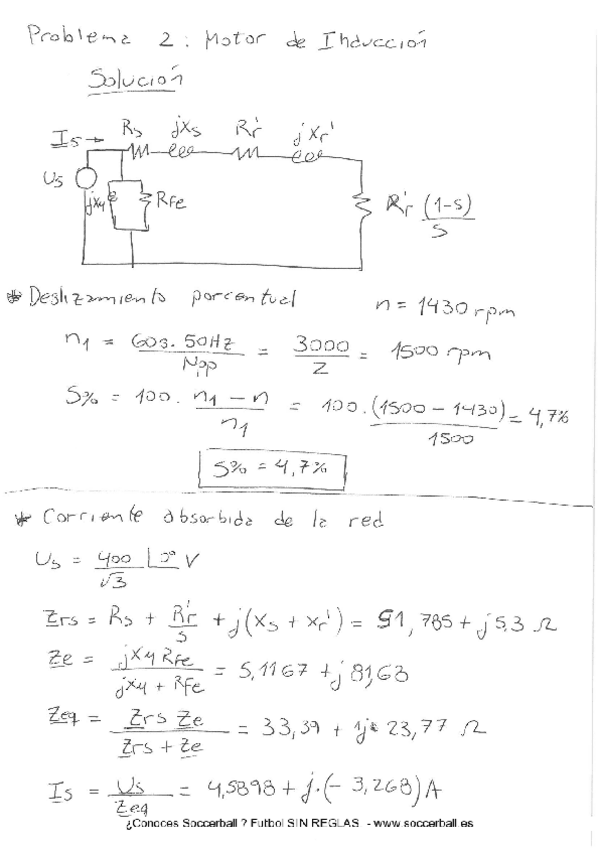 Problema 2: Motor de Inducción
Solución
Is → Rs jXs Rr' jXr'
Us jXμ RFe Rr' (1-s)/s
* Deslizamiento porcentual n = 1430 rpm
n1 = 60s. 50Hz / Npp = 3000 / 2 = 1500 rpm
S% = 100. (n1 - n) / n1 = 100. (1500 - 1430) / 1500 = 4,7%
S% = 4,7%
* Corriente absorbida de la red
Us = 400 / √3 ∟0° V
Zrs = Rs + Rr' / s + j(Xs + Xr') = 51,785 + j5,3 Ω
Ze = jXμ RFe / jXμ + RFe = 5,1167 + j 81,63
Zeq = Zrs Ze / Zrs + Ze = 33,39 + j 23,77 Ω
Is = Us / Zeq = 4,5898 + j.(- 3,268) A
¿Conoces Soccerball ? Futbol SIN REGLAS - www.soccerball.es